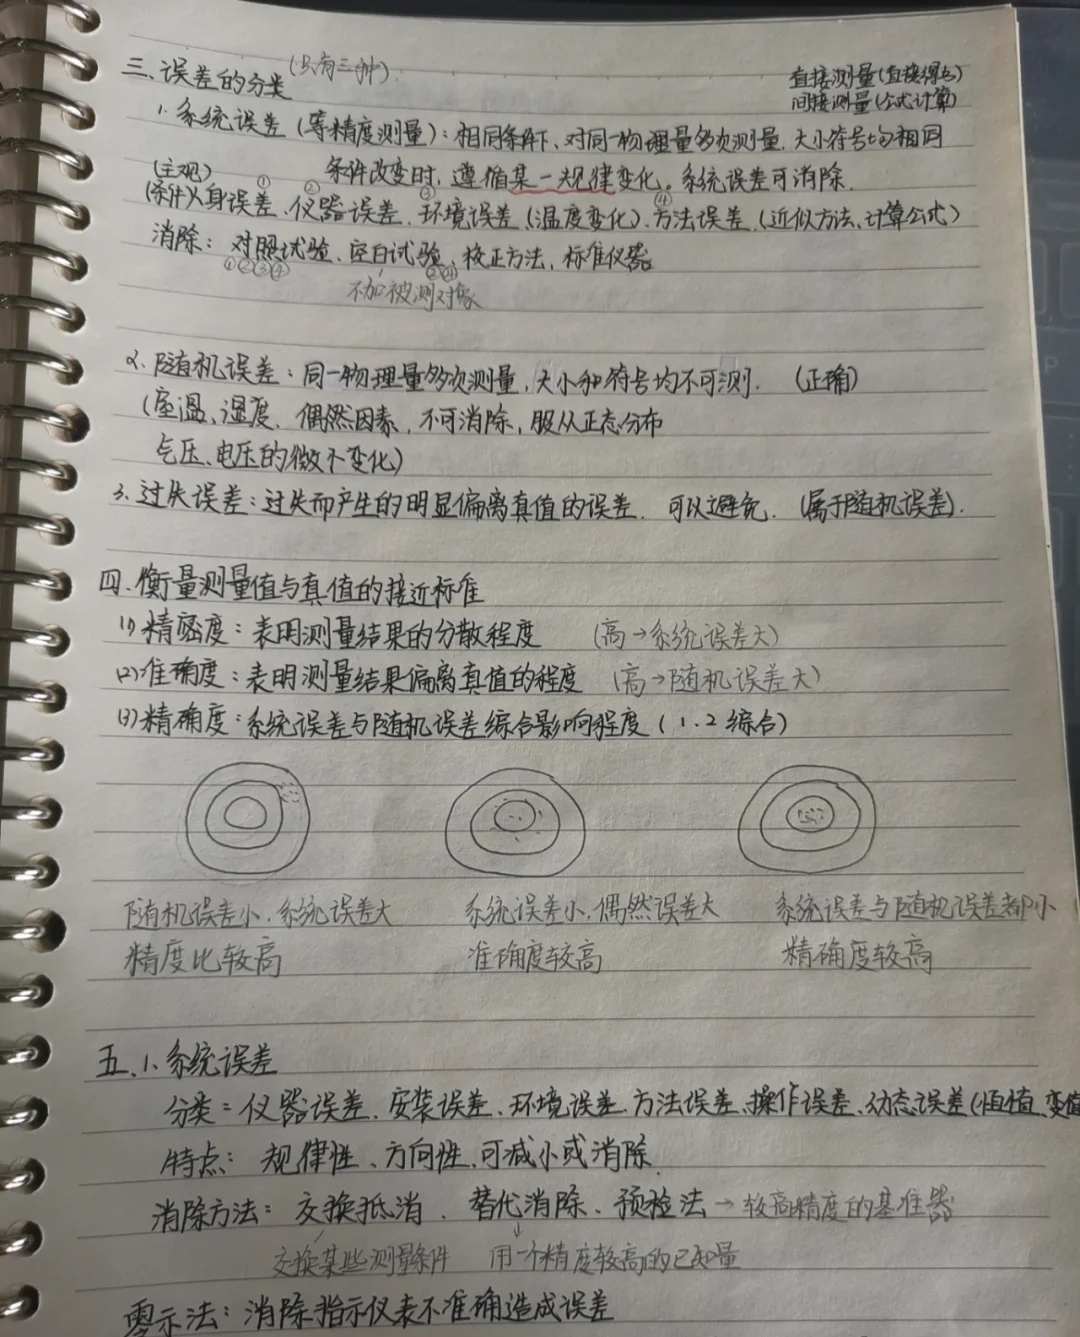 三、误差的分类(只有三种)
直接测量(直接得出)
间接测量(公式计算)
1. 系统误差(等精度测量):相同条件下、对同一物理量多次测量,大小符号均相同
(主观) 条件改变时,遵循某一规律变化。系统误差可消除.
① ② ③ ④
人身误差、仪器误差、环境误差(温度变化)、方法误差(近似方法、计算公式)
消除:对照试验、空白试验、校正方法,标准仪器
①②③④
不加被测对象
2. 随机误差:同一物理量多次测量,大小和符号均不可测. (正确)
(室温、湿度、偶然因素,不可消除,服从正态分布
气压、电压的微小变化)
3. 过失误差:过失而产生的明显偏离真值的误差. 可以避免. (属于随机误差).
四、衡量测量值与真值的接近标准
(1)精密度:表明测量结果的分散程度 (高→系统误差大)
(2)准确度:表明测量结果偏离真值的程度 (高→随机误差大)
(3)精确度:系统误差与随机误差综合影响程度(1.2综合)
随机误差小.系统误差大 系统误差小.偶然误差大 系统误差与随机误差都小
精度比较高 准确度较高 精确度较高
五.1.系统误差
分类:仪器误差、安装误差、环境误差、方法误差、操作误差、动态误差(恒值、变值
特点:规律性、方向性、可减小或消除
消除方法:交换抵消、替代消除、预检法→较高精度的基准器
交换某些测量条件 用一个精度较高的已知量
零示法:消除指示仪表不准确造成误差